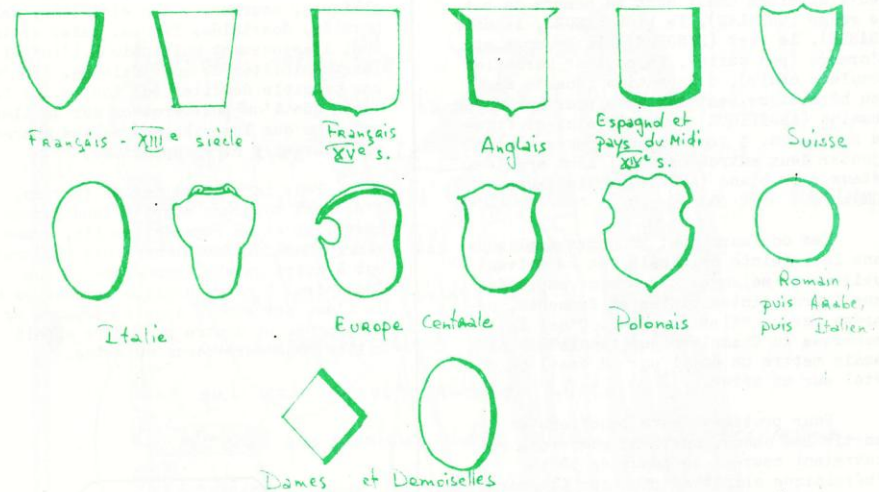 Français - XIIIe siècle.
Français
XVe s.
Anglais
Espagnol et
pays du Midi
XIVe s.
Suisse
Italie
Europe Centrale
Polonais
Romain,
puis Arabe,
puis Italien
Dames et Demoiselles